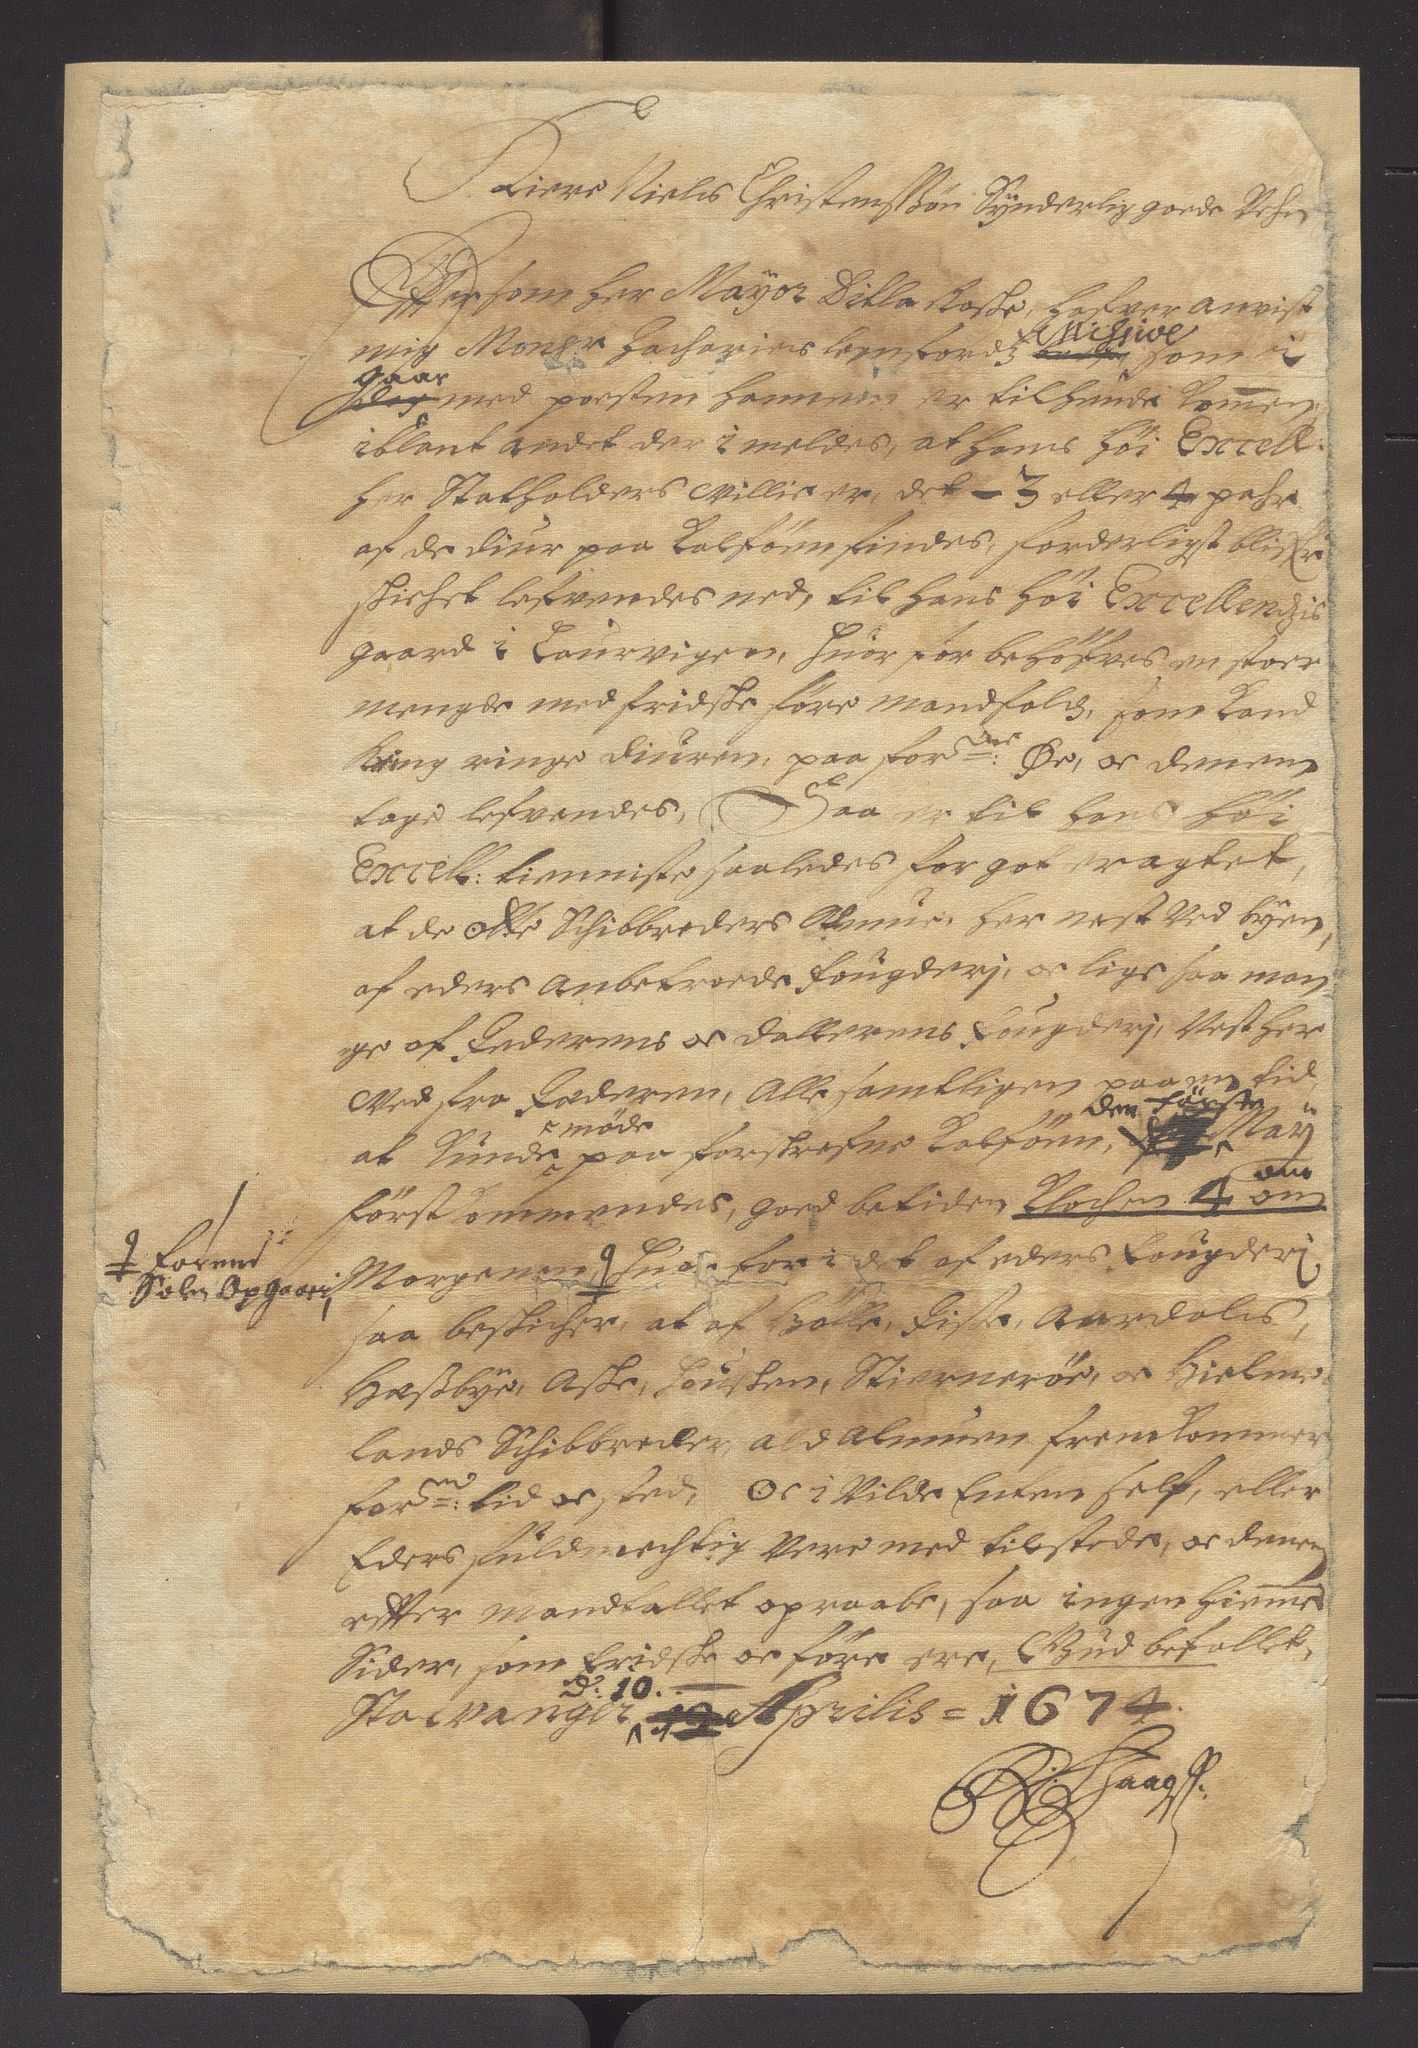 Kiere Niels Christenssøn Synderlig goede Vehn
Effter som Her Mayor Ditlø Roske, hafver anvist
mig Monsr Zacharias Lemfordz Missive som i
gaar med posten hannem er tilhande komen,
iblant andet der i meldes, at hans høi Excell:
her Statholders Villie er, det 3 eller 4 pahr
af de diur paa Calføen findes, forderligst blifver
skichet lefvendes ned, til hans høi Excellendzis
gaard i Laurvigen, huor for behøfves en stoer
mengde med fridske føre mandfolch, som kand
kring ringe diuren, paa forne: Øe, oc dennem
tage lefvendes, Saa er til hans høi
Excell: tienniste saaledes for got eragtet,
at de otte Schibbreders Almue, her nest ved byen,
af eders Anbetroede Fougderj, oc lige saa man-
ge af Jederens oc Dallerens Fougderj, Nest her
ved fra Jæderen, Alle samtligen paa en tid
at kunde møde paa forskrefne Calføen, den første Maÿ
først kommendes, goed betiden Klochen 4 om
Morgenen, Huor for i det af eders Fougderi
saa beskicher, at af Holle, Fiske, Aardals,
Hesbye, Aske, Housken, Stiernerøe, oc Hielme-
lands Schibbreder, ald Almuen fremkommer
forne: tid oc sted, Oc i Vilde Enten self, eller
Eders fuldmechtig Vere med tilstede, oc dennem
effter mandtallet opraabe, saa ingen hieme
Sider, som fridske oc føre ere, Gud befallet,
Stavanger d: 10. Aprilis = 1674.
Forend
Solen Opgaar,